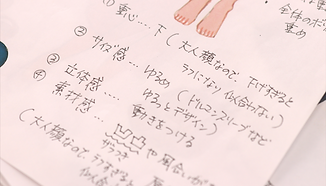 全体のボ
重め
① 重心… 下 (大人顔なので、下げすぎると
ラフになり似合わない)
② サイズ感… ゆるめ
ゆるっとデザイン (ドルマンスリーブなど)
③ 立体感…… 動きをつける
④ 素材感…
や風合いが
(大人顔なので、ラフすぎると
似合